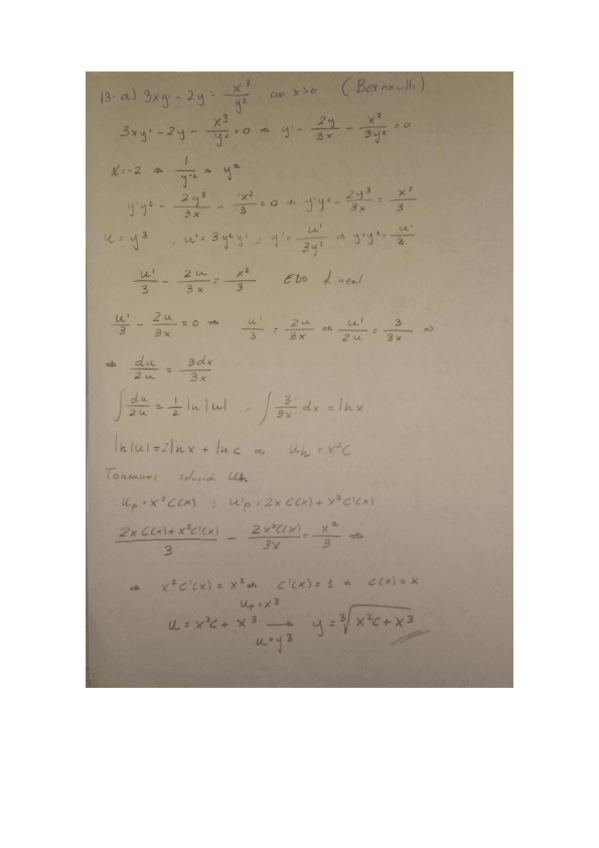 13- a) 3xy' - 2y = x³/y² con x>0 (Bernoulli)
3xy' - 2y - x³/y² = 0 ⇒ y' - 2y/3x - x²/3y² = 0
α = -2 ⇒ 1/y⁻² ⇒ y²
y'y² - 2y³/3x - x²/3 = 0 ⇒ y'y² - 2y³/3x = x²/3
u = y³ ; u' = 3y²y' ; y' = u'/3y² ⇒ y'y² = u'/3
u'/3 - 2u/3x = x²/3 EDO lineal
u'/3 - 2u/3x = 0 ⇒ u'/3 = 2u/3x ⇒ u'/2u = 3/3x ⇒
⇒ du/2u = 3dx/3x
∫ du/2u = 1/2 ln|u| ; ∫ 3/3x dx = ln x
ln|u| = 2lnx + lnc ⇒ u_h = x²C
Tomamos solución u_h
u_p = x²C(x) ; u'_p = 2xC(x) + x²C'(x)
(2xC(x) + x²C'(x))/3 - 2x²C(x)/3x = x²/3 ⇒
⇒ x²C'(x) = x² ⇒ C'(x) = 1 ⇒ C(x) = x
u_p = x³
u = x²C + x³ → y = ³√(x²C + x³)
u = y³